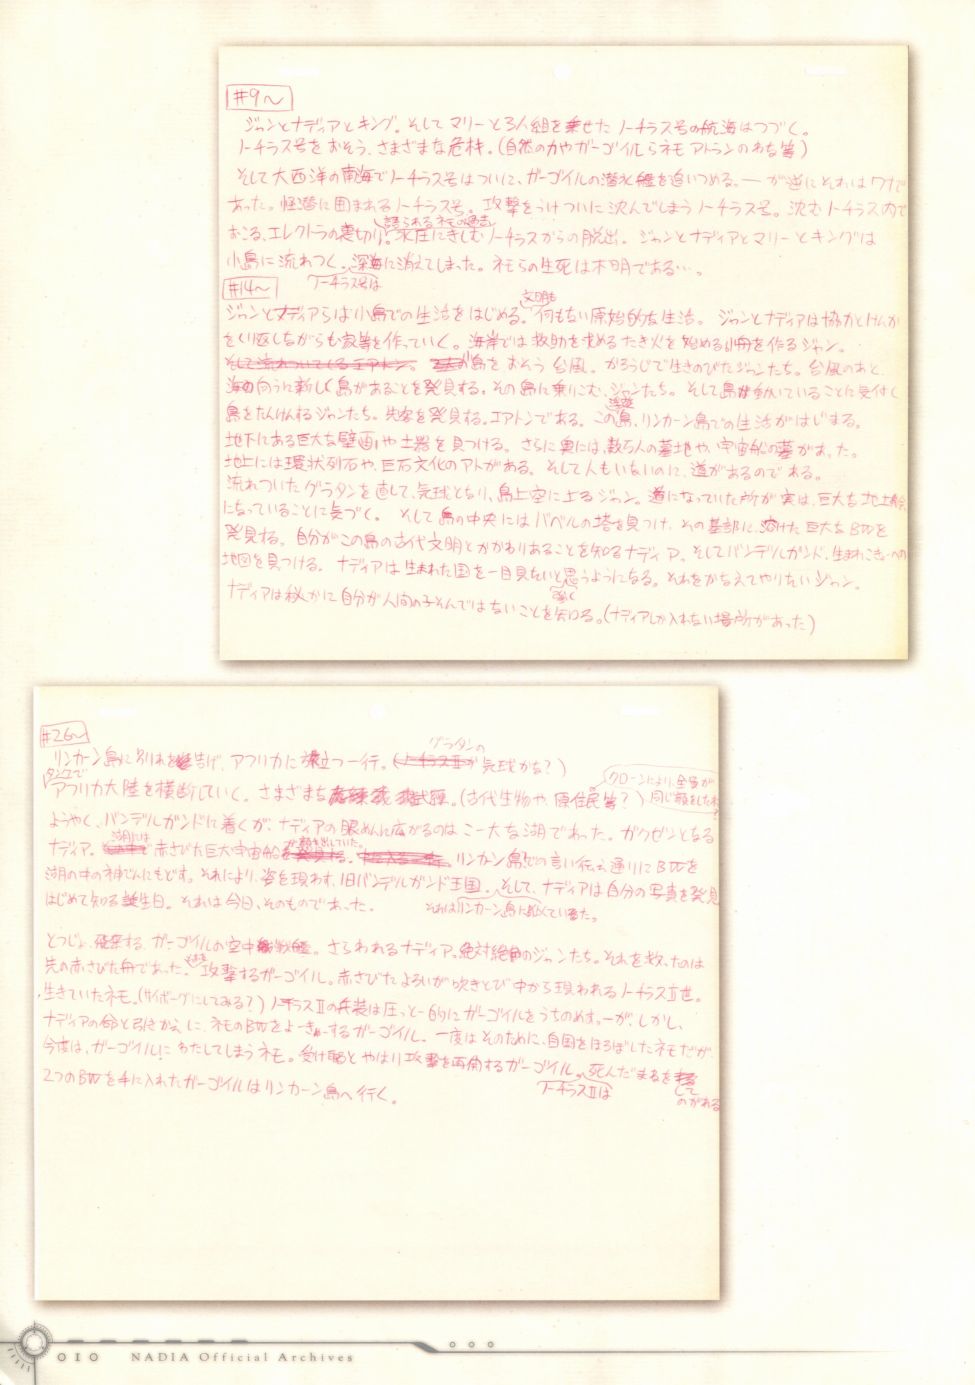 #9〜
ジャンとナディアとキング。そしてマリーと3人組を乗せたノーチラス号の航海はつづく。
ノーチラス号をおそう、さまざまな危機。(自然の力やガーゴイルらネモ アトランのわな等)
そして大西洋の南海でノーチラス号はついに、ガーゴイルの潜水艦を追いつめる。— が逆にそれはワナで
あった。怪潜に囲まれるノーチラス号。攻撃をうけついに沈んでしまうノーチラス号。沈むノーチラス内で
語られるネモの過去
おこる、エレクトラの裏切り。水圧にきしむノーチラスからの脱出。ジャンとナディアとマリーとキングは
小島に流れつく。深海に消えてしまった。ネモらの生死は不明である…。
ノーチラス号は
#14〜
文明も
ジャンとナディアらは小島での生活をはじめる。何もない原始的な生活。ジャンとナディアは協力とけんか
をくり返しながらも家等を作っていく。海岸では救助を求めるたき火を始める小舟を作るジャン。
島をおそう台風。からうじて生きのびたジャンたち。台風のあと、
海の向うに新しく島があることを発見する。その島に乗りこむ、ジャンたち。そして島が動いていることに気付く
島をたんけんするジャンたち。先客を発見する。エアトンである。この島、リンカーン島での生活がはじまる。
地下にある巨大な壁画や土器を見つける。さらに奥には、数万人の墓地や、宇宙船の墓があった。
地上には環状列石や、巨石文化のアトがある。そして人もいないのに、道があるのである。
流れついたグラタンを直して、気球となり、島上空に上るジャン。道になっていた所が実は、巨大な地上絵
になっていることに気づく。そして島の中央にはバベルの塔を見つけ、その基部に、溶けた巨大なBWを
発見する。自分がこの島の古代文明とかかわりあることを知るナディア。そしてバンデルガンド、生まれこきょうへの
地図を見つける。ナディアは生まれた国を一目見たいと思うようになる。それをかなえてやりたいジャン。
ナディアは秘かに自分が人間の子そんではないことを知る。(ナディアしか入れない場所があった)
#26〜
グラタンの
リンカーン島に別れを告げ、アフリカに旅立つ一行。(気球かな?)
タンクで
クローンにより、全員が
同じ顔をした
アフリカ大陸を横断していく。さまざまな試練。(古代生物や、原住民等?)
ようやく、バンデルガンドに着くが、ナディアの眼のまえに広がるのはこー大な湖であった。ガクゼンとなる
湖には
が顔を出していた。
ナディア。赤さびた巨大宇宙船 リンカーン島での言い伝え通りにBWを
湖の中の神でんにもどす。それにより、姿を現わす、旧バンデルガンド王国。そして、ナディアは自分の写真を発見
はじめて知る誕生日。それは今日、そのものであった。
それはリンカーン島に似ていた。
とつじょ、飛来する、ガーゴイルの空中戦艦。さらわれるナディア。絶対絶命のジャンたち。それを救ったのは
先の赤さびた舟であった。攻撃するガーゴイル。赤さびたよろいが吹きとび中から現われるノーチラスII世。
生きていたネモ。(サイボーグにしてみる?)ノーチラスIIの兵装は圧っとー的にガーゴイルをうちのめす。—が、しかし、
ナディアの命と引きかえに、ネモのBWをよーきゅーするガーゴイル。一度はそのために、自国をほろぼしたネモだが、
今度は、ガーゴイルにわたしてしまうネモ。受け取るとやはり攻撃を再開するガーゴイル。死んだまねを
ノーチラスIIは
して
のがれる
2つのBWを手に入れたガーゴイルはリンカーン島へ行く。
010 NADIA Official Archives